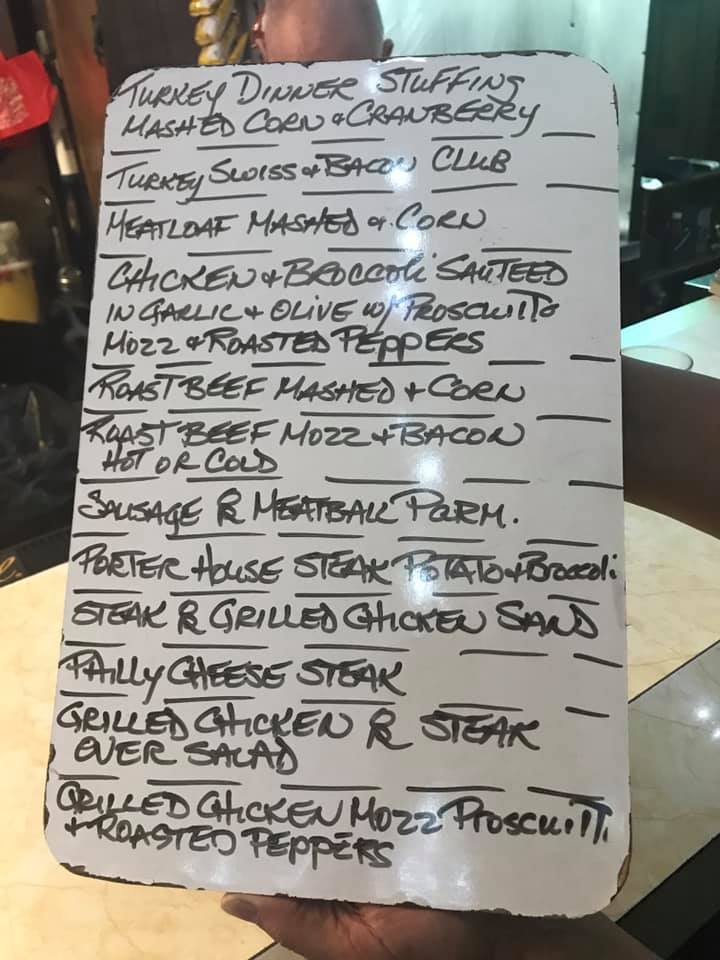 TURKEY DINNER STUFFING
MASHED CORN & CRANBERRY
TURKEY SWISS & BACON CLUB
MEATLOAF MASHED & CORN
CHICKEN & BROCCOLI SAUTEED
IN GARLIC & OLIVE W/ PROSCUITTO
MOZZ & ROASTED PEPPERS
ROAST BEEF MASHED & CORN
ROAST BEEF MOZZ & BACON
HOT OR COLD
SAUSAGE OR MEATBALL PARM.
PORTER HOUSE STEAK POTATO & BROCCOLI
STEAK OR GRILLED CHICKEN SAND
PHILLY CHEESE STEAK
GRILLED CHICKEN OR STEAK
OVER SALAD
GRILLED CHICKEN MOZZ PROSCUITT
& ROASTED PEPPERS